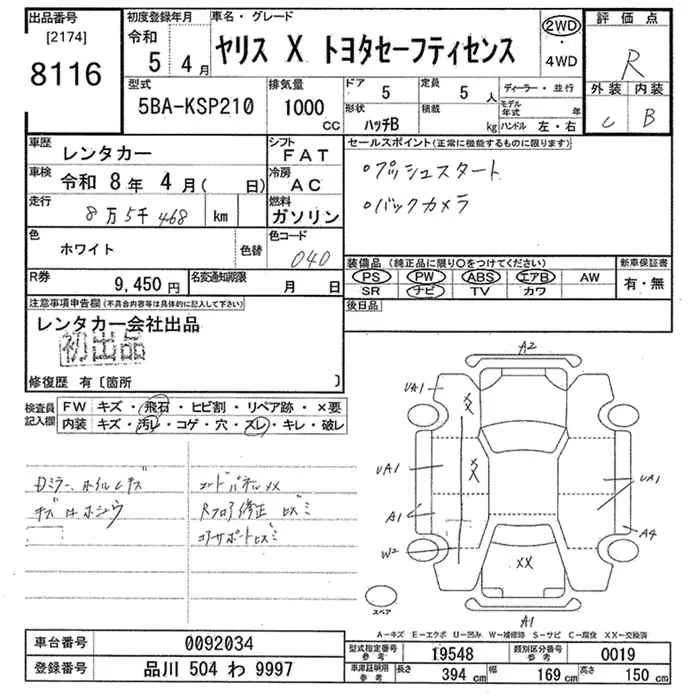 出品番号
[2174]
8116
初度登録年月
令和
5 4月
車名・グレード
ヤリス X トヨタセーフティセンス
2WD
・
4WD
評価点
R
外装 内装
C B
型式
5BA-KSP210
排気量
1000
CC
ドア 5
形状
ハッチB
定員 5 人
積載 kg
ディーラー・並行
モデル年式 年
ハンドル 左・右
車歴
レンタカー
シフト
FAT
車検 令和 8年 4月( 日)
冷房
AC
走行
8万5千468 km
燃料
ガソリン
色
ホワイト
色替
色コード
040
R券
9,450円
名変通知期限
月 日
セールスポイント(正常に機能するものに限ります)
○プッシュスタート
○バックカメラ
装備品(純正品に限り○をつけてください)
PS PW ABS エアB AW
SR ナビ TV カワ
新車保証書
有・無
後日品
注意事項申告欄(不具合内容等は具体的に記入して下さい)
レンタカー会社出品
初出品
修復歴 有〔箇所 〕
検査員
記入欄
FW キズ・飛石・ヒビ割・リペア跡・×要
内装 キズ・汚レ・コゲ・穴・スレ・キレ・破レ
Dミラー、ホイルキズ
キズ ホシュウ
コードパネルXX
Rフロア修正 ヒズミ
コアサポートヒズミ
A2
UA1
XX
UA1
XX
A1
W2
UA1
A4
XX
A1
スペア
A-キズ E-エクボ U-凹み W-補修跡 S-サビ C-腐食 XX-交換済
車台番号
0092034
登録番号
品川 504 わ 9997
型式指定番号
参考
19548
類別区分番号
参考
0019
車庫証明用
参考
長さ 394 cm
幅 169 cm
高さ 150 cm